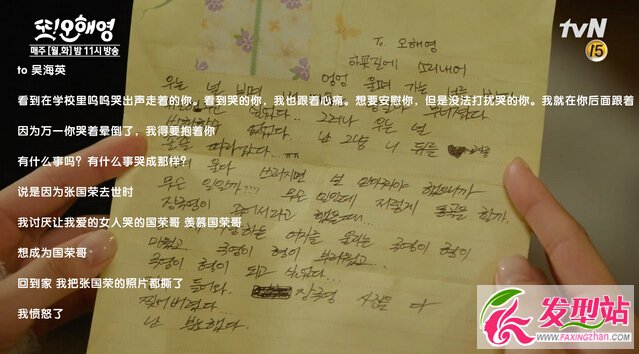 또!오해영
매주 [월,화] 밤 11시 방송
tvN
15
to 吴海英
看到在学校里呜呜哭出声走着的你。看到哭的你，我也跟着心痛。想要安慰你，但是没法打扰哭的你。我就在你后面跟着
因为万一你哭着晕倒了，我得要抱着你
有什么事吗？有什么事哭成那样？
说是因为张国荣去世时
我讨厌让我爱的女人哭的国荣哥 羡慕国荣哥
想成为国荣哥
回到家 我把张国荣的照片都撕了
我愤怒了
To 오해영
하굣길에
엉엉 울며 가는 너를
그러나 우는 널
난 그냥 니 뒤를
따라갔다...
울다 쓰러지면 널
무슨 일일까??? 무슨 일인데 저렇게 통곡을 할까.
장국영이 죽어서라고 했을때...
사랑하는 여자를 울리는 국영이 형이
미웠고 국영이 형이 부러웠고
국영이 형이 되고 싶었다...
들어와 장국영 사진을 다
찢어버렸다...
난
发型站
www.FAXINGZHAN.com